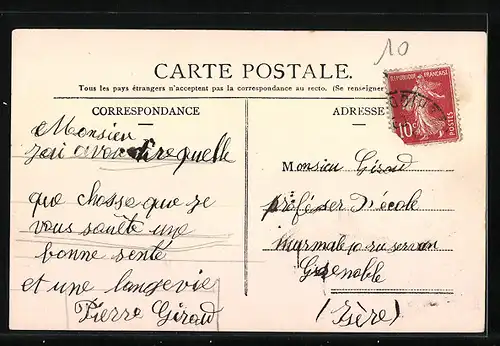 10
CARTE POSTALE.
Tous les pays étrangers n'acceptent pas la correspondance au recto. (Se renseigner
CORRESPONDANCE
ADRESSE
REPUBLIQUE FRANÇAISE
10c
POSTES
Monsieu
jai a vous dire quelle
que chosse que je
vous souète une
bonne senté
et une langevie
Pierre Giroud
Monsieu Giroud
proféser d'écele
Grenoble
(Isère)